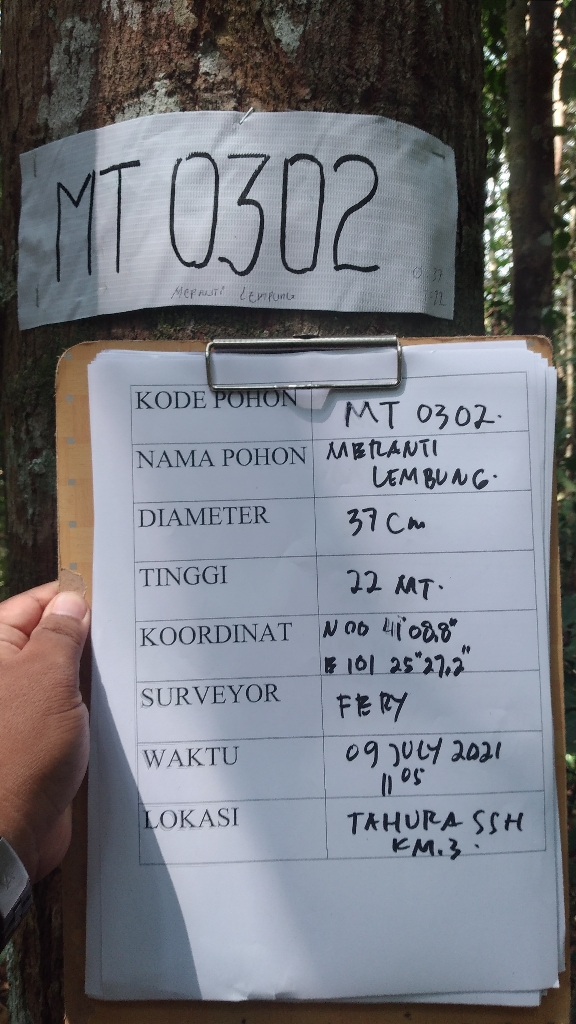 MT 0302
MERANTI LEMPUNG
KODE POHON MT 0302.
NAMA POHON MERANTI
LEMBUNG.
DIAMETER 37 Cm
TINGGI 22 MT.
KOORDINAT N 00 41' 08,8"
E 101 25" 27,2"
SURVEYOR FERY
WAKTU 09 JULY 2021
11 05
LOKASI TAHURA SSH
KM.3.